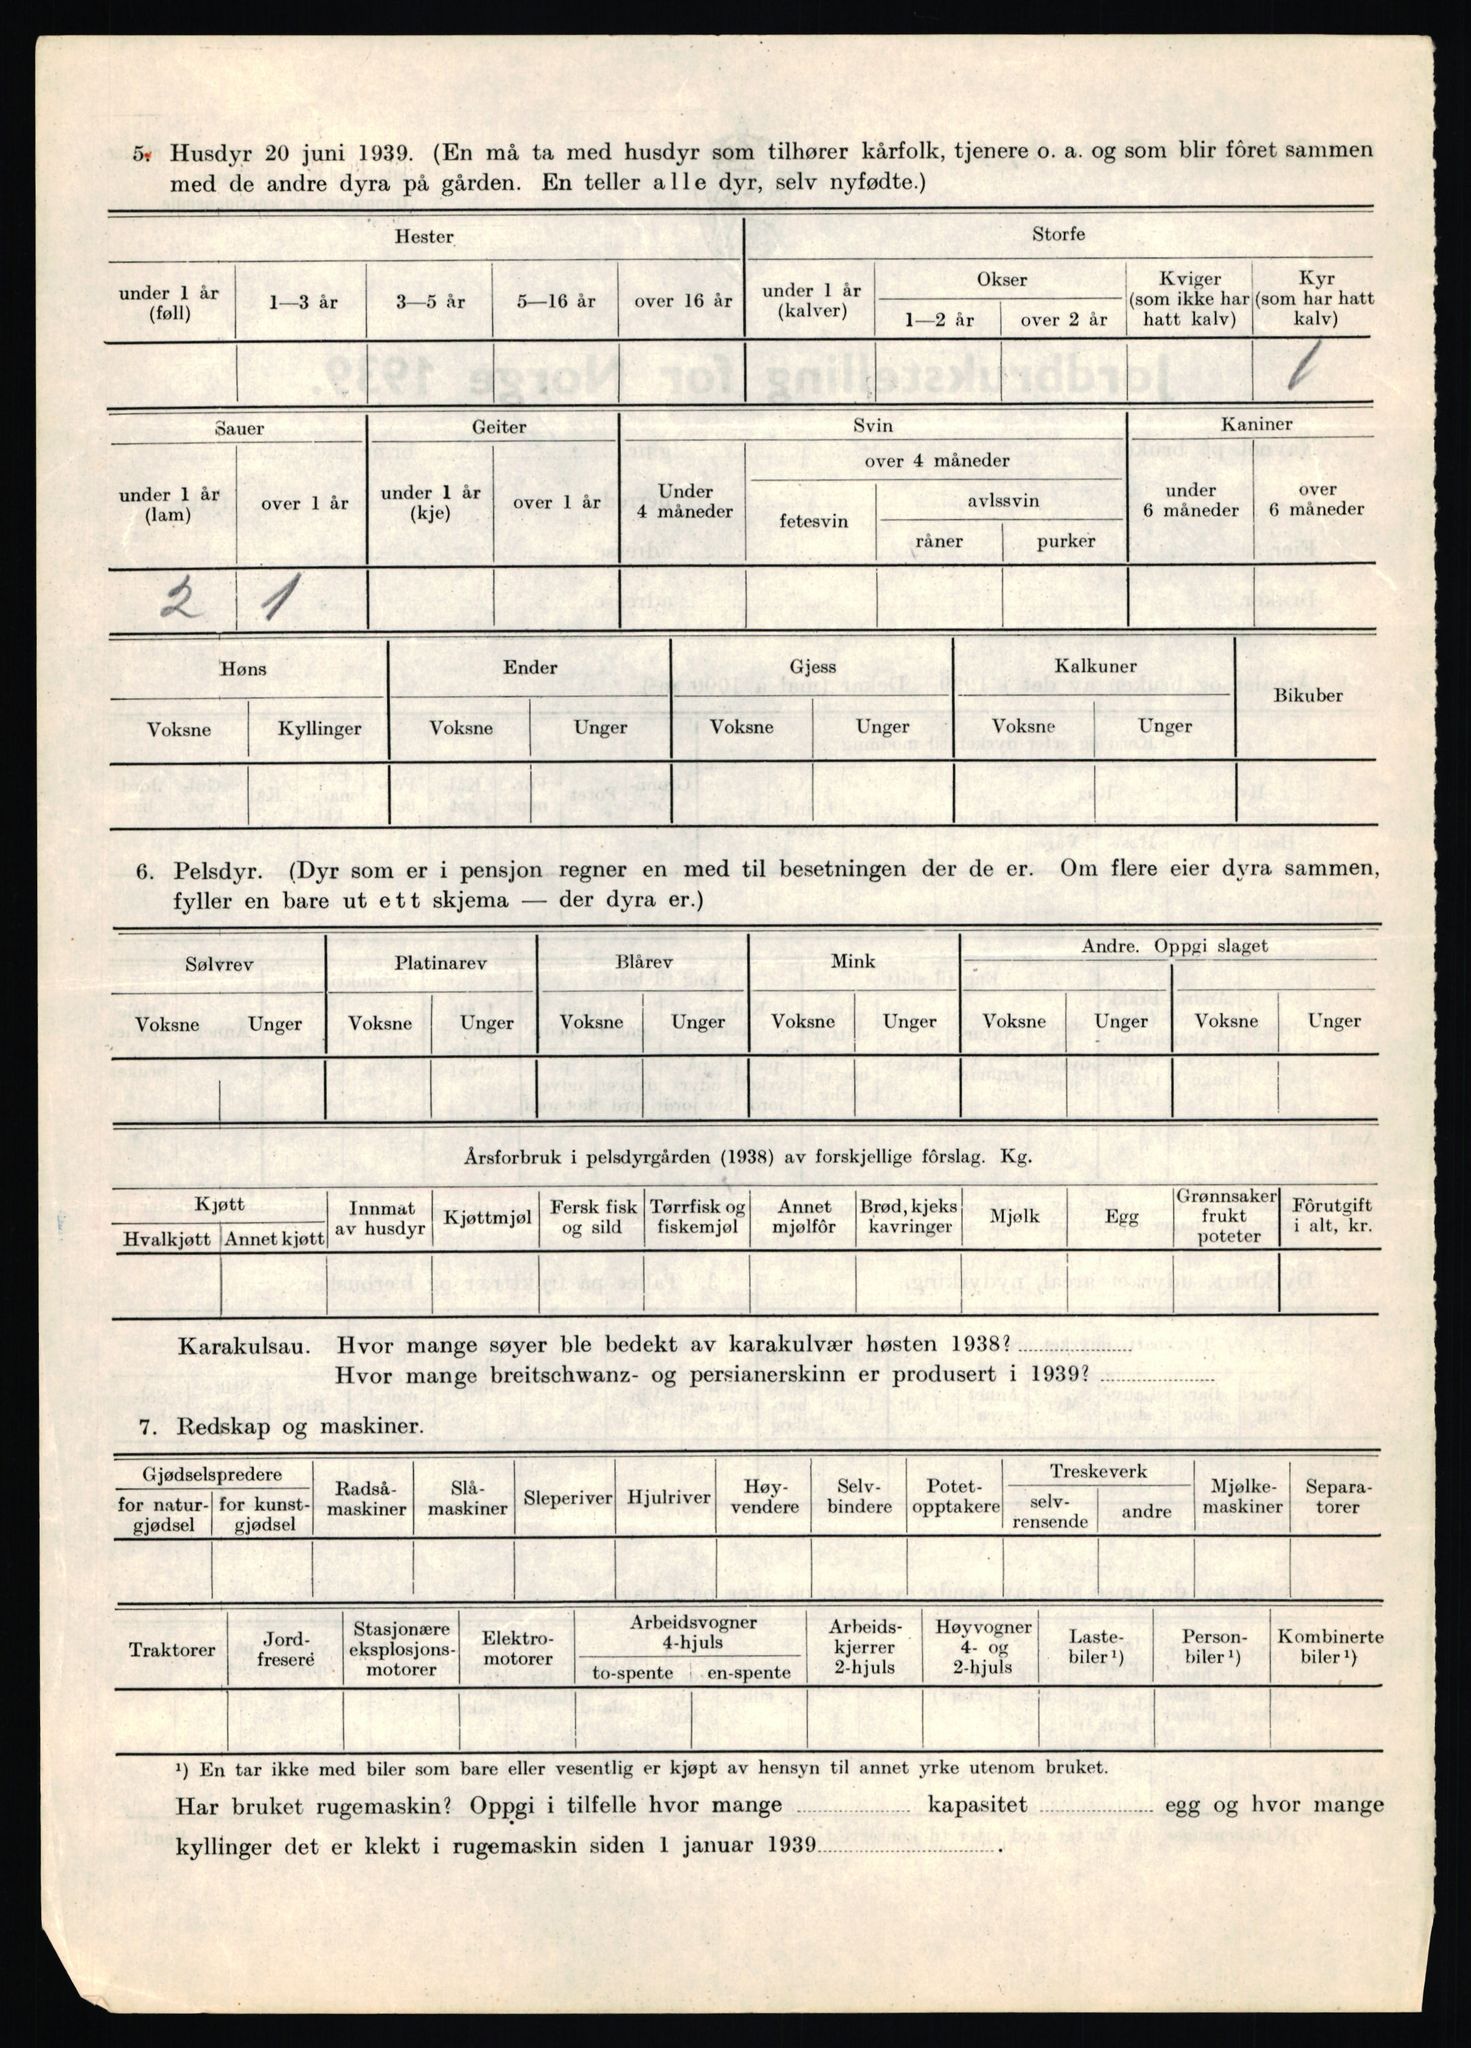 5. Husdyr 20 juni 1939. (En må ta med husdyr som tilhører kårfolk, tjenere o. a. og som blir fôret sammen
med de andre dyra på gården. En teller alle dyr, selv nyfødte.)
Hester Storfe
under 1 år (føll) 1—3 år 3—5 år 5—16 år over 16 år under 1 år (kalver) Okser Kviger (som ikke har hatt kalv) Kyr (som har hatt kalv)
1—2 år over 2 år
1
Sauer Geiter Svin Kaniner
over 4 måneder
under 1 år (lam) over 1 år under 1 år (kje) over 1 år Under 4 måneder fetesvin avlssvin under 6 måneder over 6 måneder
råner purker
2 1
Høns Ender Gjess Kalkuner Bikuber
Voksne Kyllinger Voksne Unger Voksne Unger Voksne Unger
6. Pelsdyr. (Dyr som er i pensjon regner en med til besetningen der de er. Om flere eier dyra sammen,
fyller en bare ut ett skjema — der dyra er.)
Sølvrev Platinarev Blårev Mink Andre. Oppgi slaget
Voksne Unger Voksne Unger Voksne Unger Voksne Unger Voksne Unger Voksne Unger
Årsforbruk i pelsdyrgården (1938) av forskjellige fôrslag. Kg.
Kjøtt Innmat av husdyr Kjøttmjøl Fersk fisk og sild Tørrfisk og fiskemjøl Annet mjølfôr Brød, kjeks kavringer Mjølk Egg Grønnsaker frukt poteter Fôrutgift i alt, kr.
Hvalkjøtt Annet kjøtt
Karakulsau. Hvor mange søyer ble bedekt av karakulvær høsten 1938?
Hvor mange breitschwanz- og persianerskinn er produsert i 1939?
7. Redskap og maskiner.
Gjødselspredere Radså-maskiner Slå-maskiner Sleperiver Hjulriver Høy-vendere Selv-bindere Potet-opptakere Treskeverk Mjølke-maskiner Separa-torer
for natur-gjødsel for kunst-gjødsel selv-rensende andre
Traktorer Jord-freseré Stasjonære eksplosjons-motorer Elektro-motorer Arbeidsvogner 4-hjuls Arbeids-kjerrer 2-hjuls Høyvogner 4- og 2-hjuls Laste-biler ¹) Person-biler ¹) Kombinerte biler ¹)
to-spente en-spente
¹) En tar ikke med biler som bare eller vesentlig er kjøpt av hensyn til annet yrke utenom bruket.
Har bruket rugemaskin? Oppgi i tilfelle hvor mange kapasitet egg og hvor mange
kyllinger det er klekt i rugemaskin siden 1 januar 1939 .